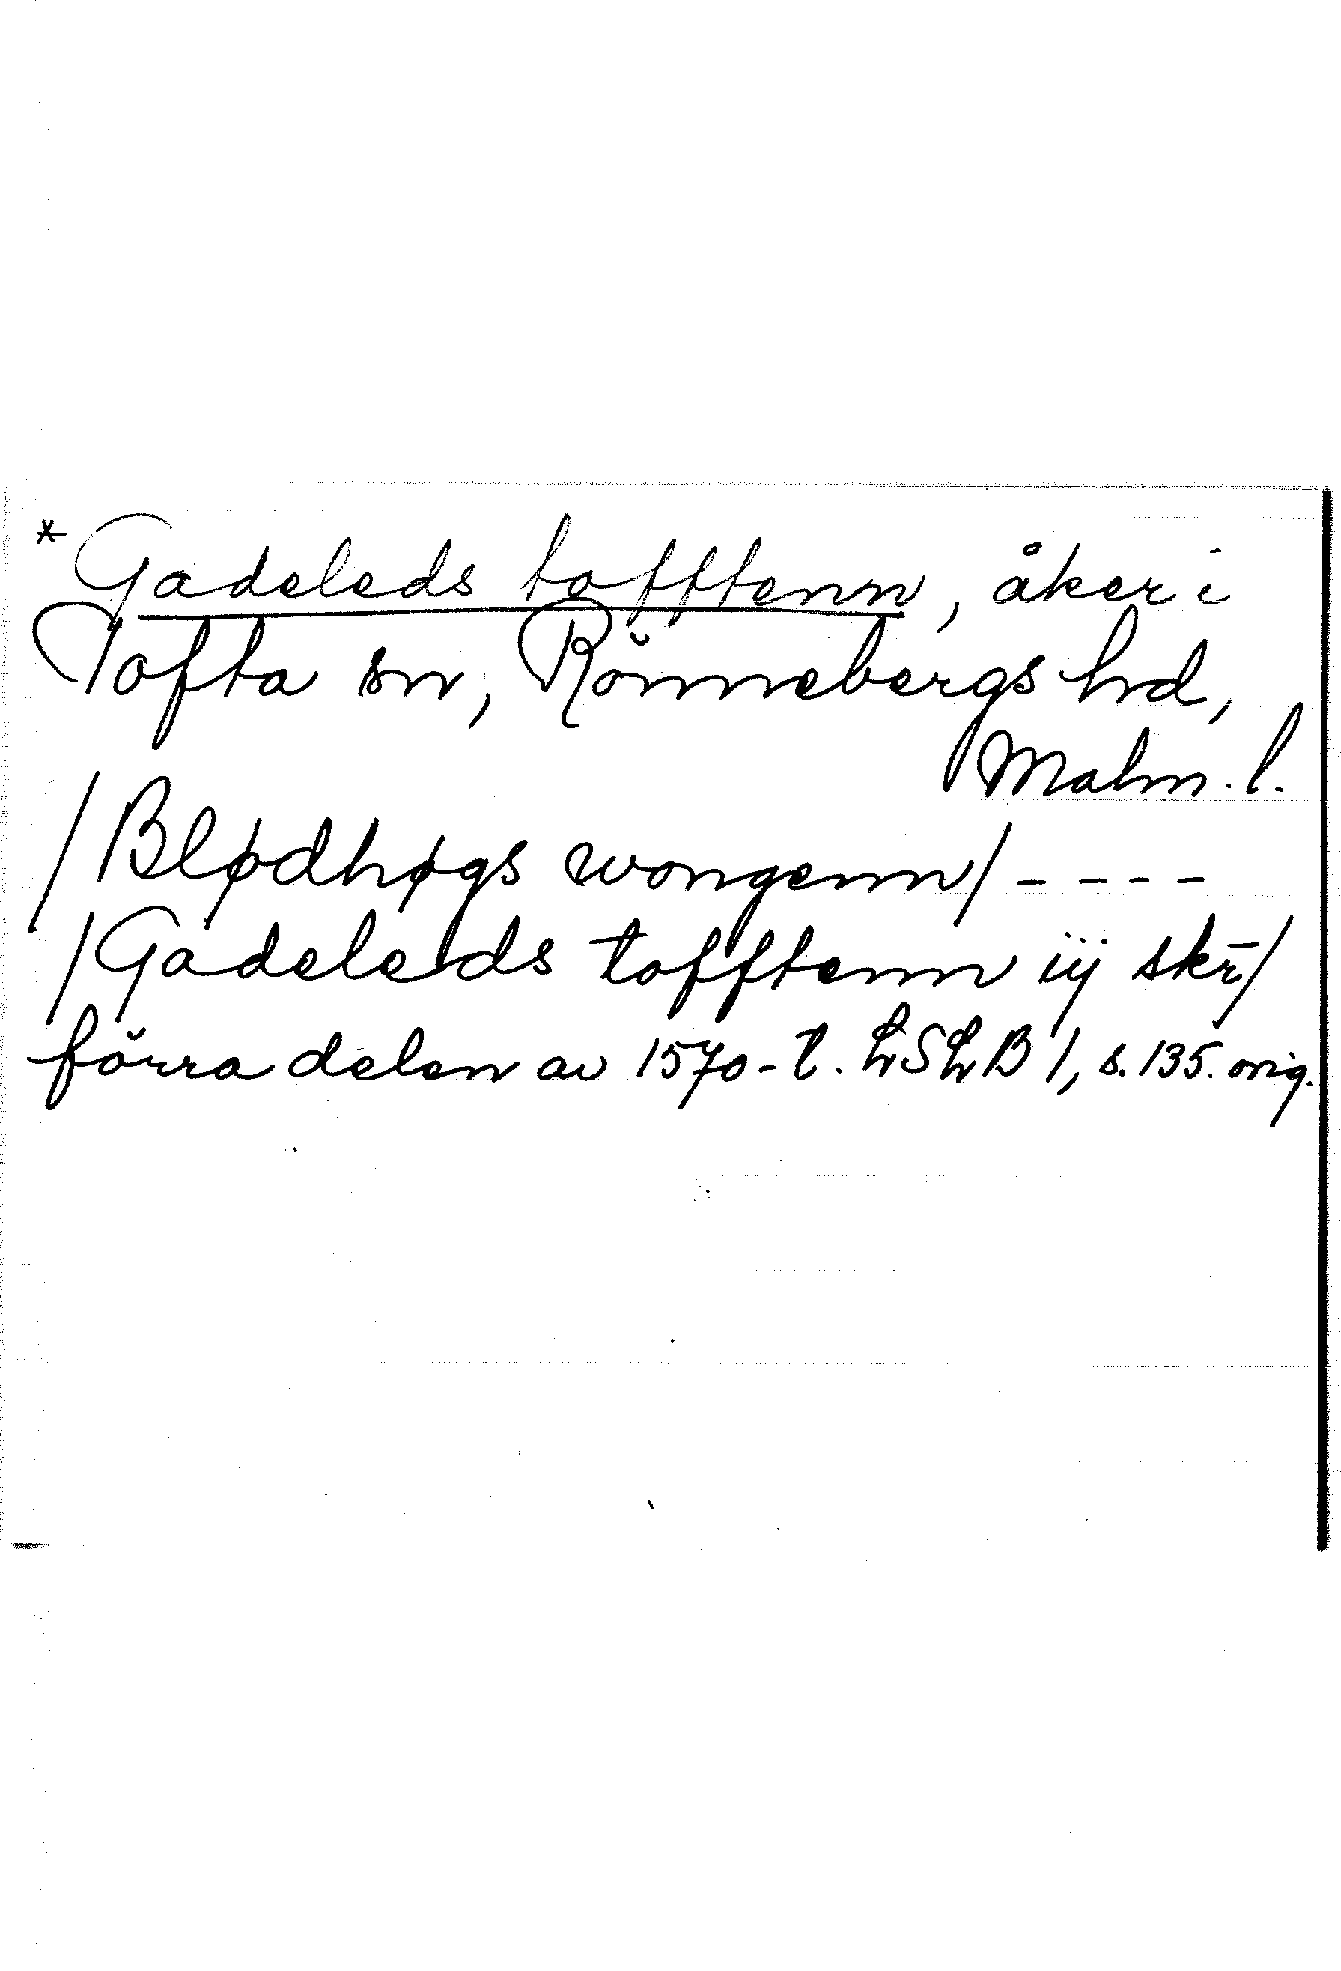 * Gadeleds tofftenn, åker i
Tofta sn, Rönnebergs hrd,
Malm. l.
/Blødhøgs wongenn/ - - - -
/Gadeleds tofftenn iij skr̄/
förra delen av 1570-t. LSLB 1, s. 135. orig.